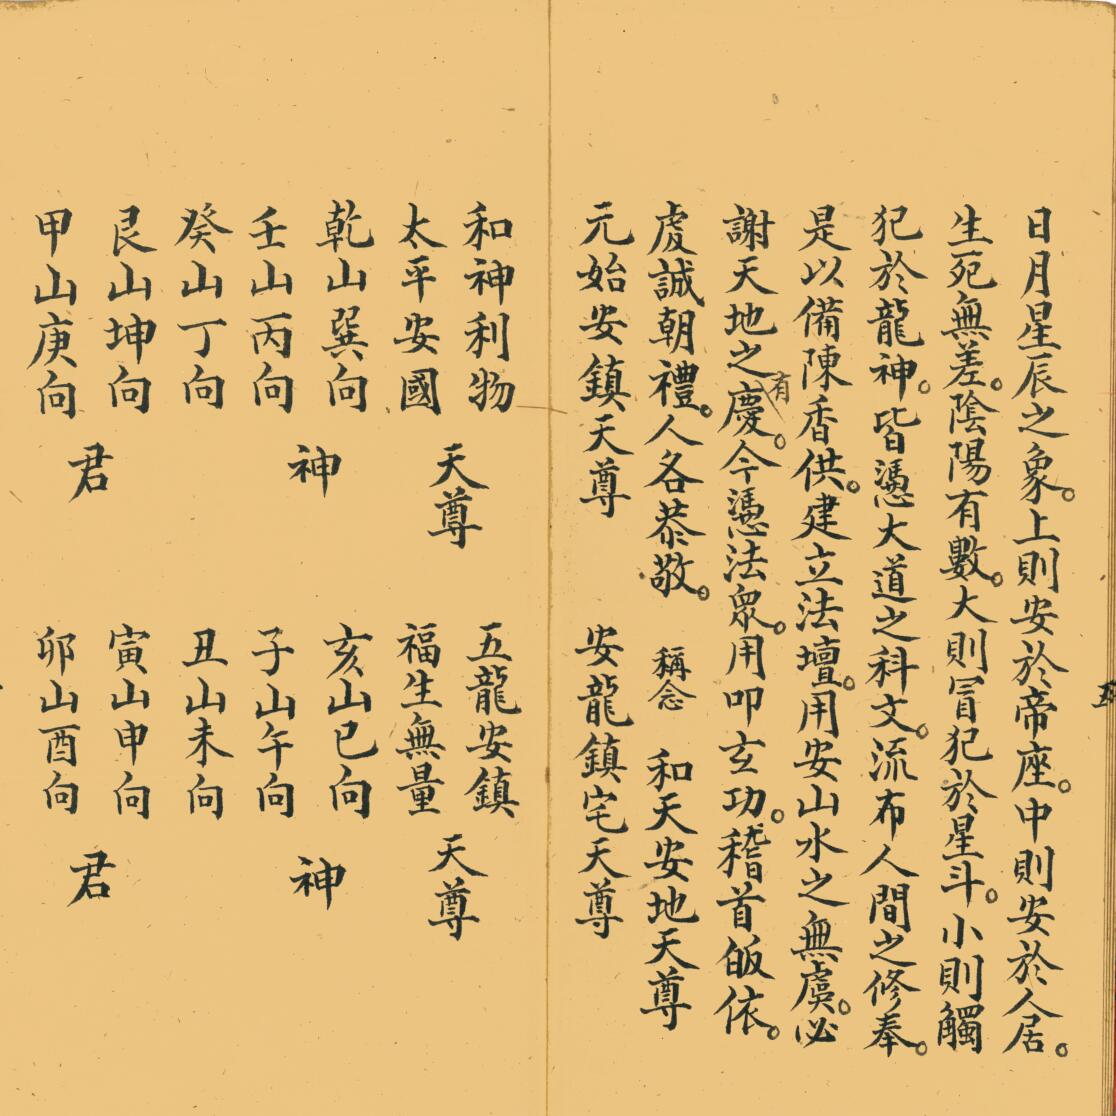 日月星辰之象。上則安於帝座。中則安於人居。
生死無差。陰陽有數。大則冒犯於星斗。小則觸
犯於龍神。皆憑大道之科文。流布人間之修奉。
是以備陳香供。建立法壇。用安山水之無虞。必
有
謝天地之慶。今憑法眾。用叩玄功。稽首皈依。
虔誠朝禮。人各恭敬。 稱念 和天安地天尊
元始安鎮天尊 安龍鎮宅天尊
和神利物 五龍安鎮
太平安國 福生無量
天尊 天尊
乾山巽向 亥山巳向
壬山丙向 子山午向
神 神
癸山丁向 丑山未向
艮山坤向 寅山申向
甲山庚向 卯山酉向
君 君